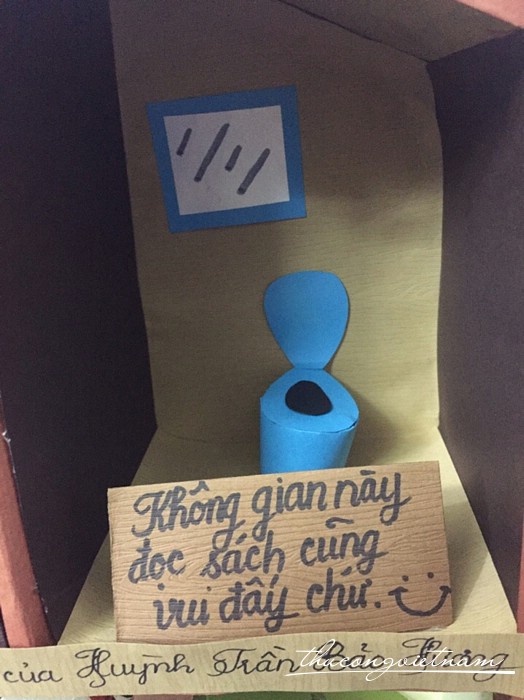 Không gian này
đọc sách cũng
vui đấy chứ.
của Huỳnh Trần
thucongvietnam